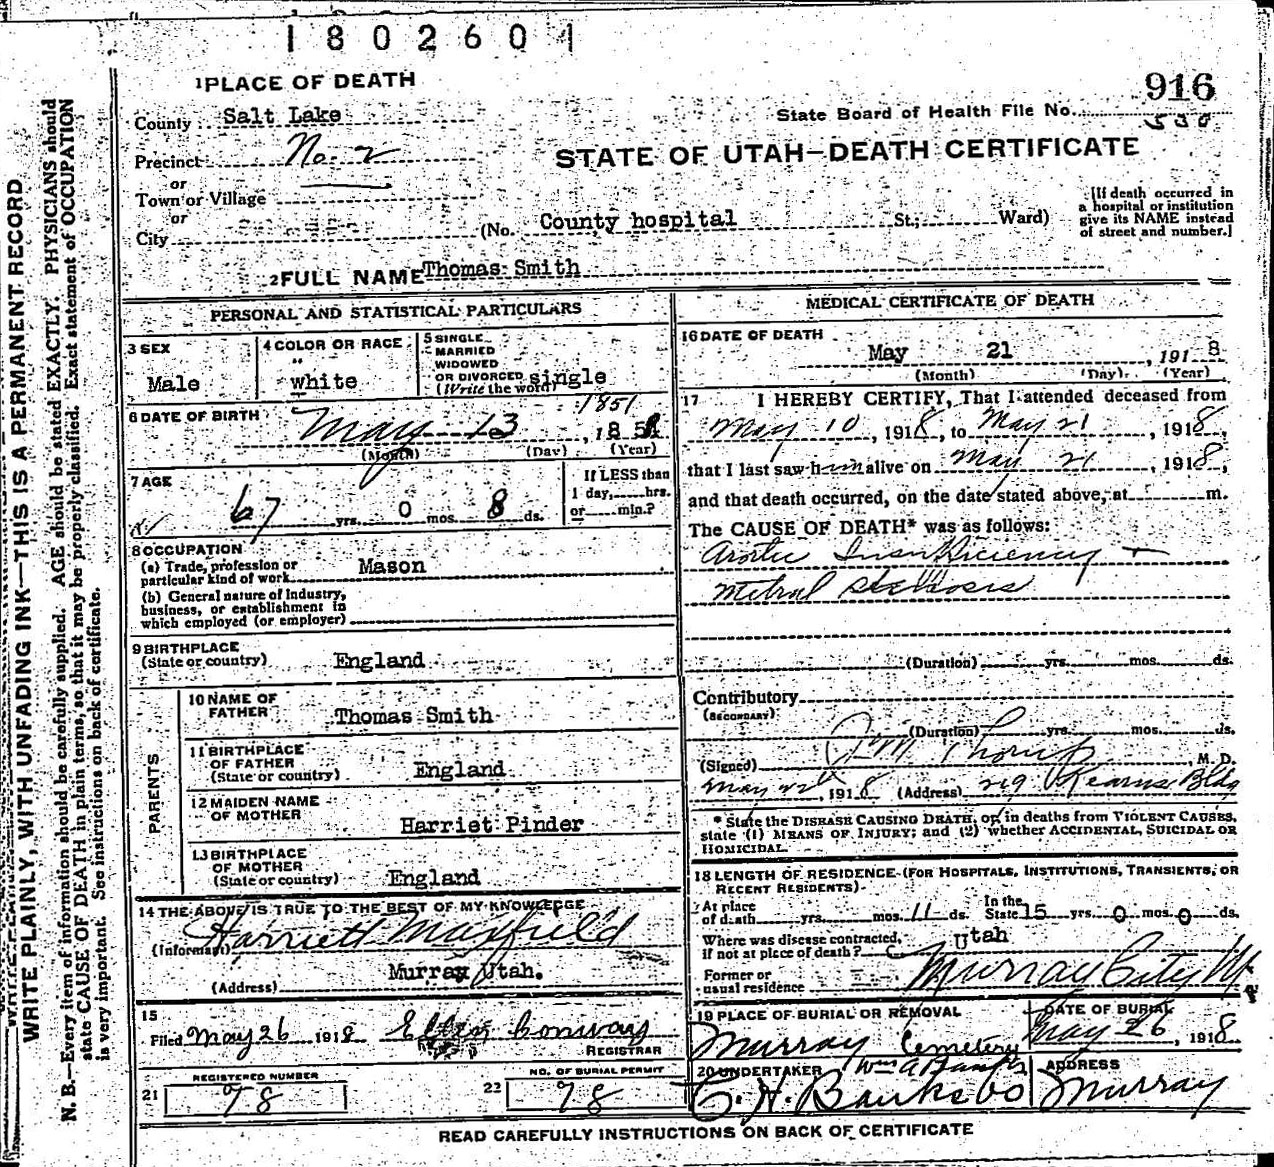 1802601
1 PLACE OF DEATH
916
County Salt Lake
State Board of Health File No. 530
Precinct No. 2
STATE OF UTAH—DEATH CERTIFICATE
or
Town or Village
or
City (No. County hospital St; Ward)
[If death occurred in
a hospital or institution
give its NAME instead
of street and number.]
2 FULL NAME Thomas Smith
PERSONAL AND STATISTICAL PARTICULARS
3 SEX
Male
4 COLOR OR RACE
white
5 SINGLE
MARRIED
WIDOWED
OR DIVORCED
(Write the word) single
6 DATE OF BIRTH
1851
May 13, 185
(Month) (Day) (Year)
7 AGE
67 yrs. 0 mos. 8 ds.
If LESS than
1 day, hrs.
or min.?
8 OCCUPATION
(a) Trade, profession or
particular kind of work Mason
(b) General nature of industry,
business, or establishment in
which employed (or employer)
9 BIRTHPLACE
(State or country) England
PARENTS
10 NAME OF
FATHER Thomas Smith
11 BIRTHPLACE
OF FATHER
(State or country) England
12 MAIDEN NAME
OF MOTHER
Harriet Pinder
13 BIRTHPLACE
OF MOTHER
(State or country) England
14 THE ABOVE IS TRUE TO THE BEST OF MY KNOWLEDGE
(Informant) Harriett Maxfield
(Address) Murray Utah.
15
Filed May 26 1918 Ellen Conway
REGISTRAR
21 REGISTERED NUMBER
78
22 NO. OF BURIAL PERMIT
78
MEDICAL CERTIFICATE OF DEATH
16 DATE OF DEATH
May 21, 1918
(Month) (Day) (Year)
17 I HEREBY CERTIFY, That I attended deceased from
May 10, 1918, to May 21, 1918,
that I last saw him alive on May 21, 1918,
and that death occurred, on the date stated above, at m.
The CAUSE OF DEATH* was as follows:
Aortic Insufficiency +
Mitral Stenosis
(Duration) yrs. mos. ds.
Contributory
(SECONDARY)
(Duration) yrs. mos. ds.
(Signed) M. D.
May 22, 1918 (Address) Kearns Bldg
* State the DISEASE CAUSING DEATH, or, in deaths from VIOLENT CAUSES,
state (1) MEANS OF INJURY; and (2) whether ACCIDENTAL, SUICIDAL OR
HOMICIDAL.
18 LENGTH OF RESIDENCE (FOR HOSPITALS, INSTITUTIONS, TRANSIENTS, OR
RECENT RESIDENTS)
At place
of death yrs. mos. 11 ds.
In the
State 15 yrs. 0 mos. 0 ds.
Where was disease contracted,
if not at place of death? Utah
Former or
usual residence Murray City Ut
19 PLACE OF BURIAL OR REMOVAL
Murray Cemetery
DATE OF BURIAL
May 26, 1918
20 UNDERTAKER
C. H. Banks Co
ADDRESS
Murray
READ CAREFULLY INSTRUCTIONS ON BACK OF CERTIFICATE
WRITE PLAINLY, WITH UNFADING INK—THIS IS A PERMANENT RECORD
N. B.—Every item of information should be carefully supplied. AGE should be stated EXACTLY. PHYSICIANS should
state CAUSE OF DEATH in plain terms, so that it may be properly classified. Exact statement of OCCUPATION
is very important. See instructions on back of certificate.